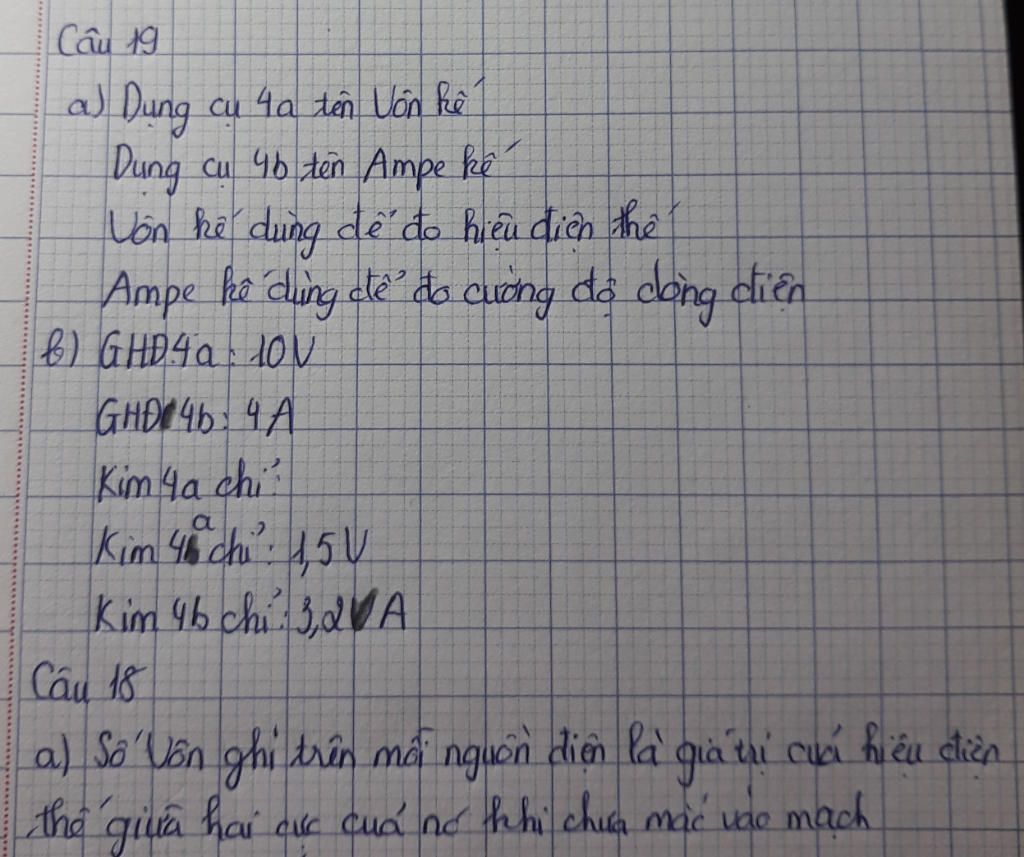 Câu 19
a) Dụng cụ 4a tên Vôn kế
Dụng cụ 4b tên Ampe kế
Vôn kế dùng để đo hiệu điện thế
Ampe kế dùng để đo cường độ dòng điện
b) GHĐ 4a: 10V
GHĐ 4b: 4A
Kim 4a chỉ:
Kim 4a chỉ: 1,5V
Kim 4b chỉ: 3,2 A
Câu 18
a) Số Vôn ghi trên mỗi nguồn điện là giá trị của hiệu điện
thế giữa hai cực của nó khi chưa mắc vào mạch